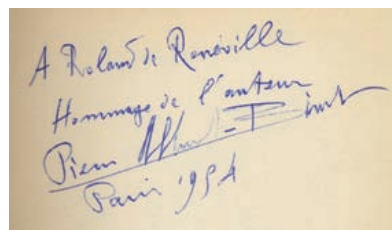 A Roland de Renéville
Hommage de l'auteur
Pierre Albert-Birot
Paris 1954